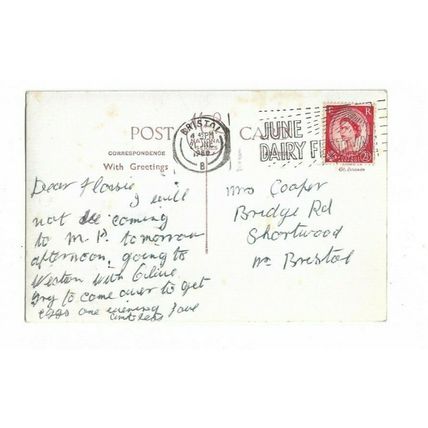 POST CA
CORRESPONDENCE
With Greetings
BRISTOL
JUNE
DAIRY FE
E R
Dear Flossie
I will
not be coming
to M.P. tomorrow
afternoon, going to
Weston with
try to come over to get
eggs one evening
love
Mrs Cooper
Bridge Rd
Shortwood
Nr Bristol